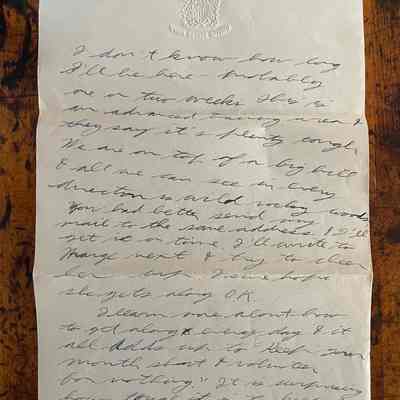 I don't know how long
I'll be here - Probably
one or two weeks. This is
an advanced training area &
they say it's plenty tough.
We are on top of a big hill
& all we can see in every
direction is wild rocky woods.
You had better send my
mail to the same address & I'll
get it on time. I'll write to
Marge next & try to cheer
her up. I sure hope
she gets along O.K.
I learn more about how
to get along every day & it
all adds up to "Keep your
mouth shut & volunteer
for nothing." It is surprising
how